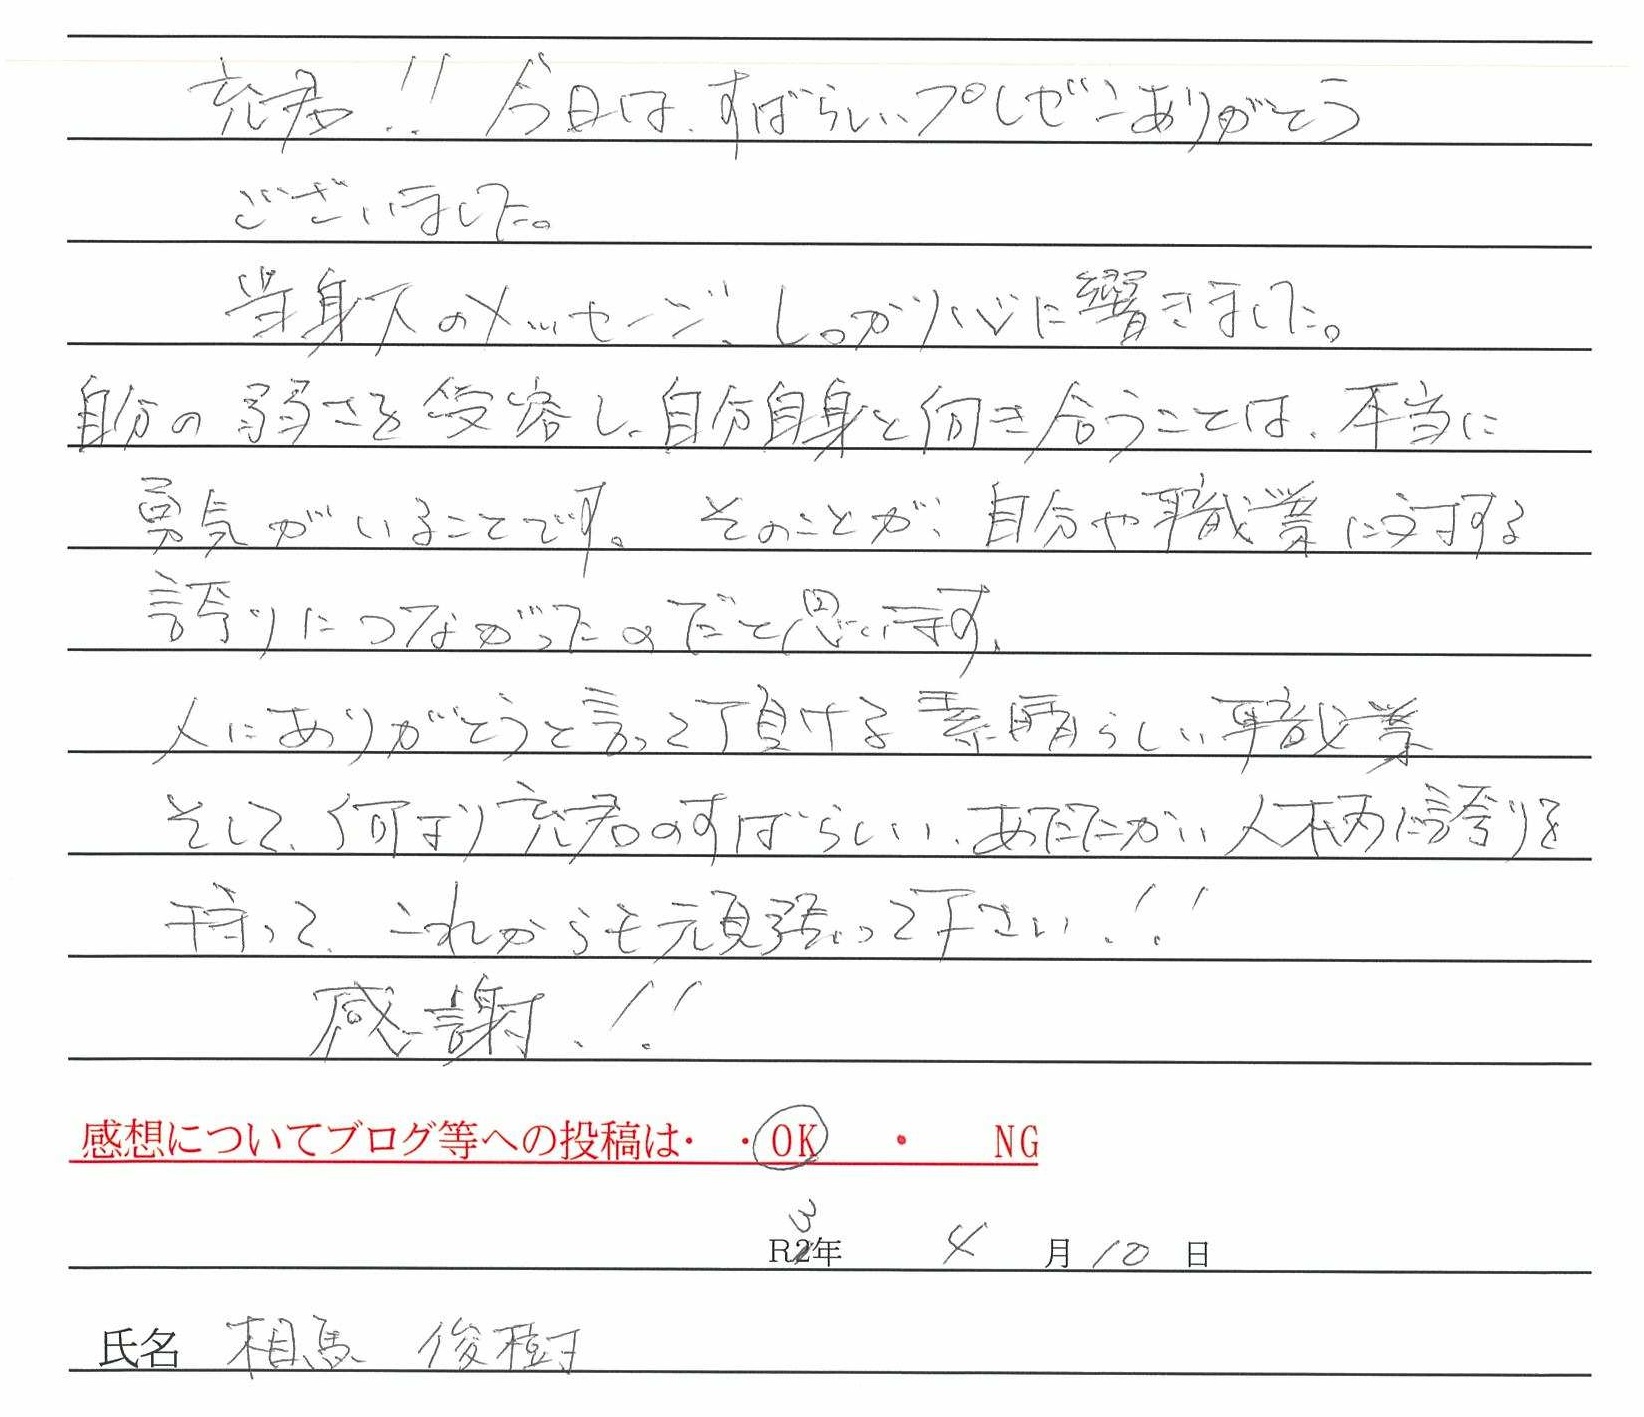 充君!! 今日は、すばらしいプレゼンありがとう
ございました。
等身大のメッセージ、しっかり心に響きました。
自分の弱さを受容し、自分自身と向き合うことは、本当に
勇気がいることです。そのことが、自分や職業に対する
誇りにつながったのだと思います。
人にありがとうと言って頂ける素晴らしい職業
そして、何より充君のすばらしい、あたたかい人柄に誇りを
持って、これからも頑張って下さい!!
感謝!!
感想についてブログ等への投稿は・・OK ・ NG
R3年 4月10日
氏名 相馬 俊樹